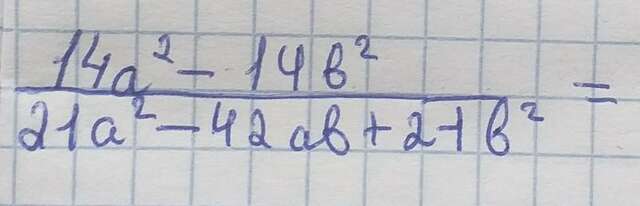 14a² - 14b²
21a² - 42ab + 21b² =